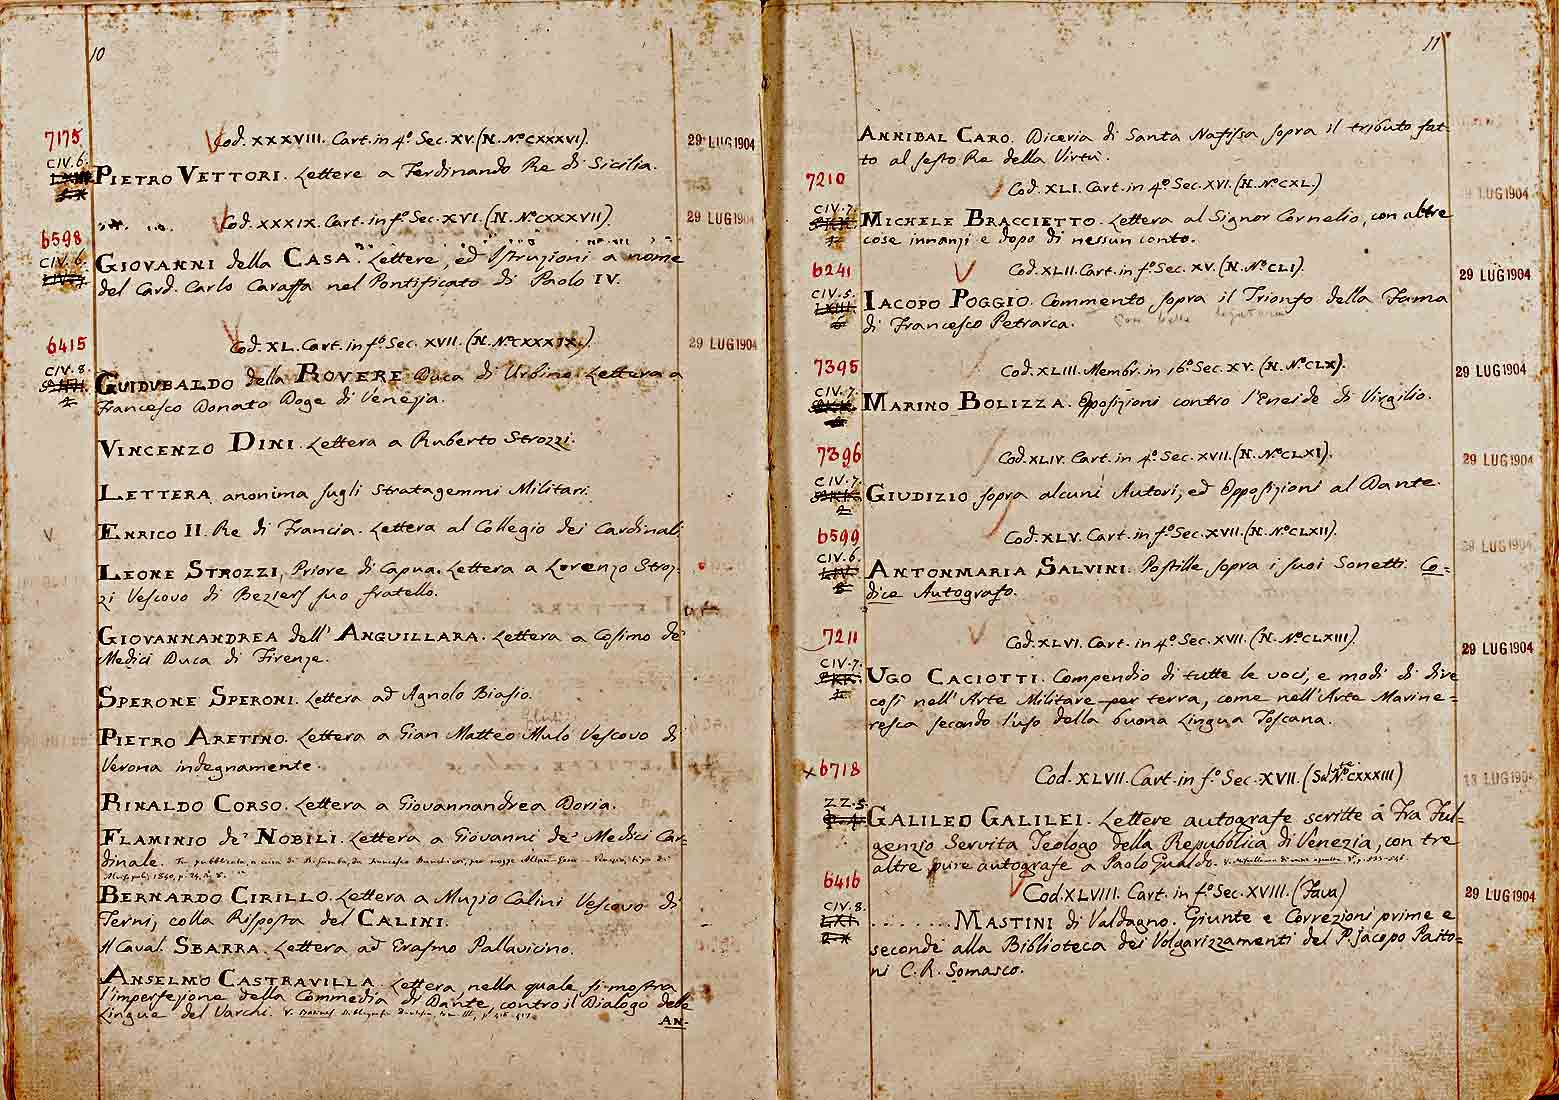 10
7175
Cod. XXXVIII. Cart. in 4º. Sec. XV. (N. Nº. CXXXVI).
29 LUG 1904
CIV. 6.
PIETRO VETTORI. Lettere a Ferdinando Re di Sicilia.
Cod. XXXIX. Cart. in fº. Sec. XVI. (N. Nº. CXXXVII).
29 LUG 1904
6598
CIV. 6.
GIOVANNI della CASA. Lettere, ed Istruzioni a nome
del Card. Carlo Caraffa nel Pontificato di Paolo IV.
6415
Cod. XL. Cart. in fº. Sec. XVII. (N. Nº. CXXXIX.)
29 LUG 1904
CIV. 8.
GUIDUBALDO della ROVERE Duca di Urbino. Lettera a
Francesco Donato Doge di Venezia.
VINCENZO DINI. Lettera a Ruberto Strozzi.
LETTERA anonima sugli Stratagemmi Militari.
ENRICO II. Re di Francia. Lettera al Collegio dei Cardinali
LEONE STROZZI, Priore di Capua. Lettera a Lorenzo Stroz-
zi Vescovo di Beziers suo fratello.
GIOVANNANDREA dell' ANGUILLARA. Lettera a Cosimo de'
Medici Duca di Firenze.
SPERONE SPERONI. Lettera ad Agnolo Biasio.
PIETRO ARETINO. Lettera a Gian Matteo Mulo Vescovo di
Verona indegnamente.
RINALDO CORSO. Lettera a Giovannandrea Doria.
FLAMINIO de' NOBILI. Lettera a Giovanni de' Medici Car-
dinale.
BERNARDO CIRILLO. Lettera a Muzio Calini Vescovo di
Terni, colla Risposta del CALINI.
Il Caval. SBARRA. Lettera ad Erasmo Pallavicino.
ANSELMO CASTRAVILLA. Lettera, nella quale si mostra
l'imperfezione della Commedia di Dante, contro il Dialogo delle
Lingue del Varchi.
AN-
11
ANNIBAL CARO. Diceria di Santa Nafissa, sopra il tributo fat-
to al sesto Re della Virtù.
7210
Cod. XLI. Cart. in 4º. Sec. XVI. (N. Nº. CXL.)
LUG 1904
CIV. 7.
MICHELE BRACCIETTO. Lettera al Signor Cornelio, con altre
cose innanzi e dopo di nessun conto.
6241
Cod. XLII. Cart. in fº. Sec. XV. (N. Nº. CLI).
29 LUG 1904
CIV. 5.
IACOPO POGGIO. Commento sopra il Trionfo della Fama
di Francesco Petrarca.
7395
Cod. XLIII. Membr. in 16º. Sec. XV. (N. Nº. CLX).
29 LUG 1904
CIV. 7.
MARINO BOLIZZA. Opposizioni contro l'Eneide di Virgilio.
7396
Cod. XLIV. Cart. in 4º. Sec. XVII. (N. Nº. CLXI).
29 LUG 1904
CIV. 7.
GIUDIZIO sopra alcuni Autori, ed Opposizioni al Dante.
6599
Cod. XLV. Cart. in fº. Sec. XVII. (N. Nº. CLXII).
29 LUG 1904
CIV. 6.
ANTONMARIA SALVINI. Postille sopra i suoi Sonetti. Co-
dice Autografo.
7211
Cod. XLVI. Cart. in 4º. Sec. XVII. (N. Nº. CLXIII).
29 LUG 1904
CIV. 7.
UGO CACIOTTI. Compendio di tutte le voci, e modi di dire
così nell'Arte Militare per terra, come nell'Arte Marine-
resca secondo l'uso della buona Lingua Toscana.
x 6718
Cod. XLVII. Cart. in fº. Sec. XVII. (Sal. Nº. CXXXIII)
LUG 1904
ZZ. 5.
GALILEO GALILEI. Lettere autografe scritte a Fra Ful-
genzio Servita Teologo della Repubblica di Venezia, con tre
altre pure autografe a Paolo Gualdo.
6416
Cod. XLVIII. Cart. in fº. Sec. XVIII. (Fava)
29 LUG 1904
CIV. 8.
........ MASTINI di Valdagno. Giunte e Correzioni prime e
seconde alla Biblioteca dei Volgarizzamenti del P. Jacopo Paito-
ni C. R. Somasco.